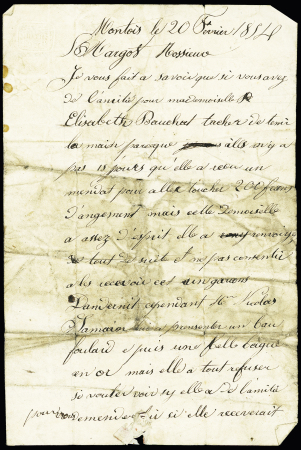 Montois le 20 Février 1854
Margot Monsieur
Je vous fait a savoir que si vous avez
de l'amitié pour mademoiselle
Elisabeth Bauchat tacher de tenir
la main parceque il ny a
pas 15 jours qu'elle a recu un
mendat pour aller toucher 200 francs
d'argement mais cette demoiselle
a assez d'esprit elle a renvoyé
de tout de suite et ne pas consentir
a les recevoir ces
cependant Mr Nicolas
un beau
foulard e puis une belle bague
en or mais elle a tout refuser
si elle a de l'amité
pour vous demender si elle receverait